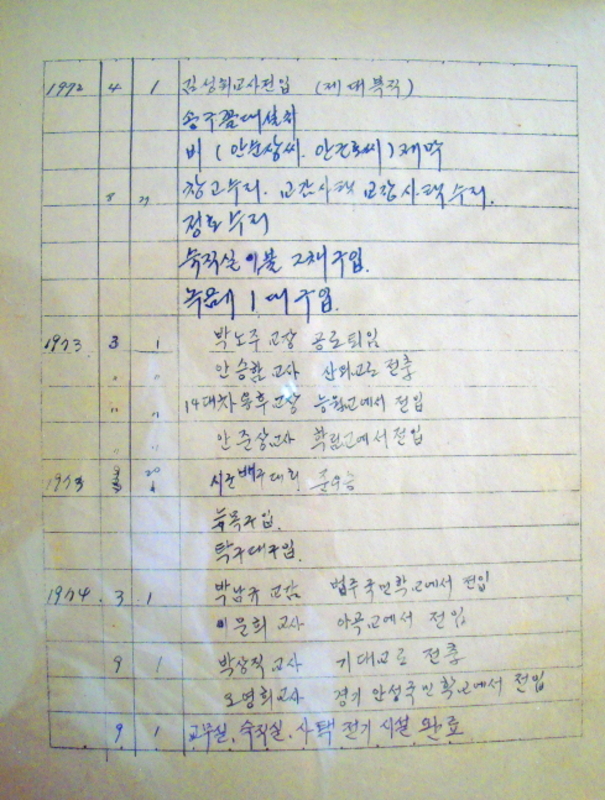 1972 4 1 김성회교사전입 (제대복직)
송주꿈대설치
비 (안분상씨. 안건로씨) 제막
창고수리. 교감사택 교장사택수리.
수리
숙직실이불 2채구입.
1대구입.
1973 3 1 박노주교장 공로퇴임
〃 〃 안승함교사 산외교로 전출
〃 〃 14대차용후교장 능월교에서 전입
〃 〃 안준상교사 학림교에서전입
1973 20 배구대회 준우승
구입.
탁구대구입.
1974. 3. 1 박남규교감 법주국민학교에서 전입
이문희교사 아곡교에서 전입
9 1 박상직교사 기대교로 전출
오영희교사 경기안성국민학교에서 전입
9 1 교무실. 숙직실. 사택 전기시설 완료